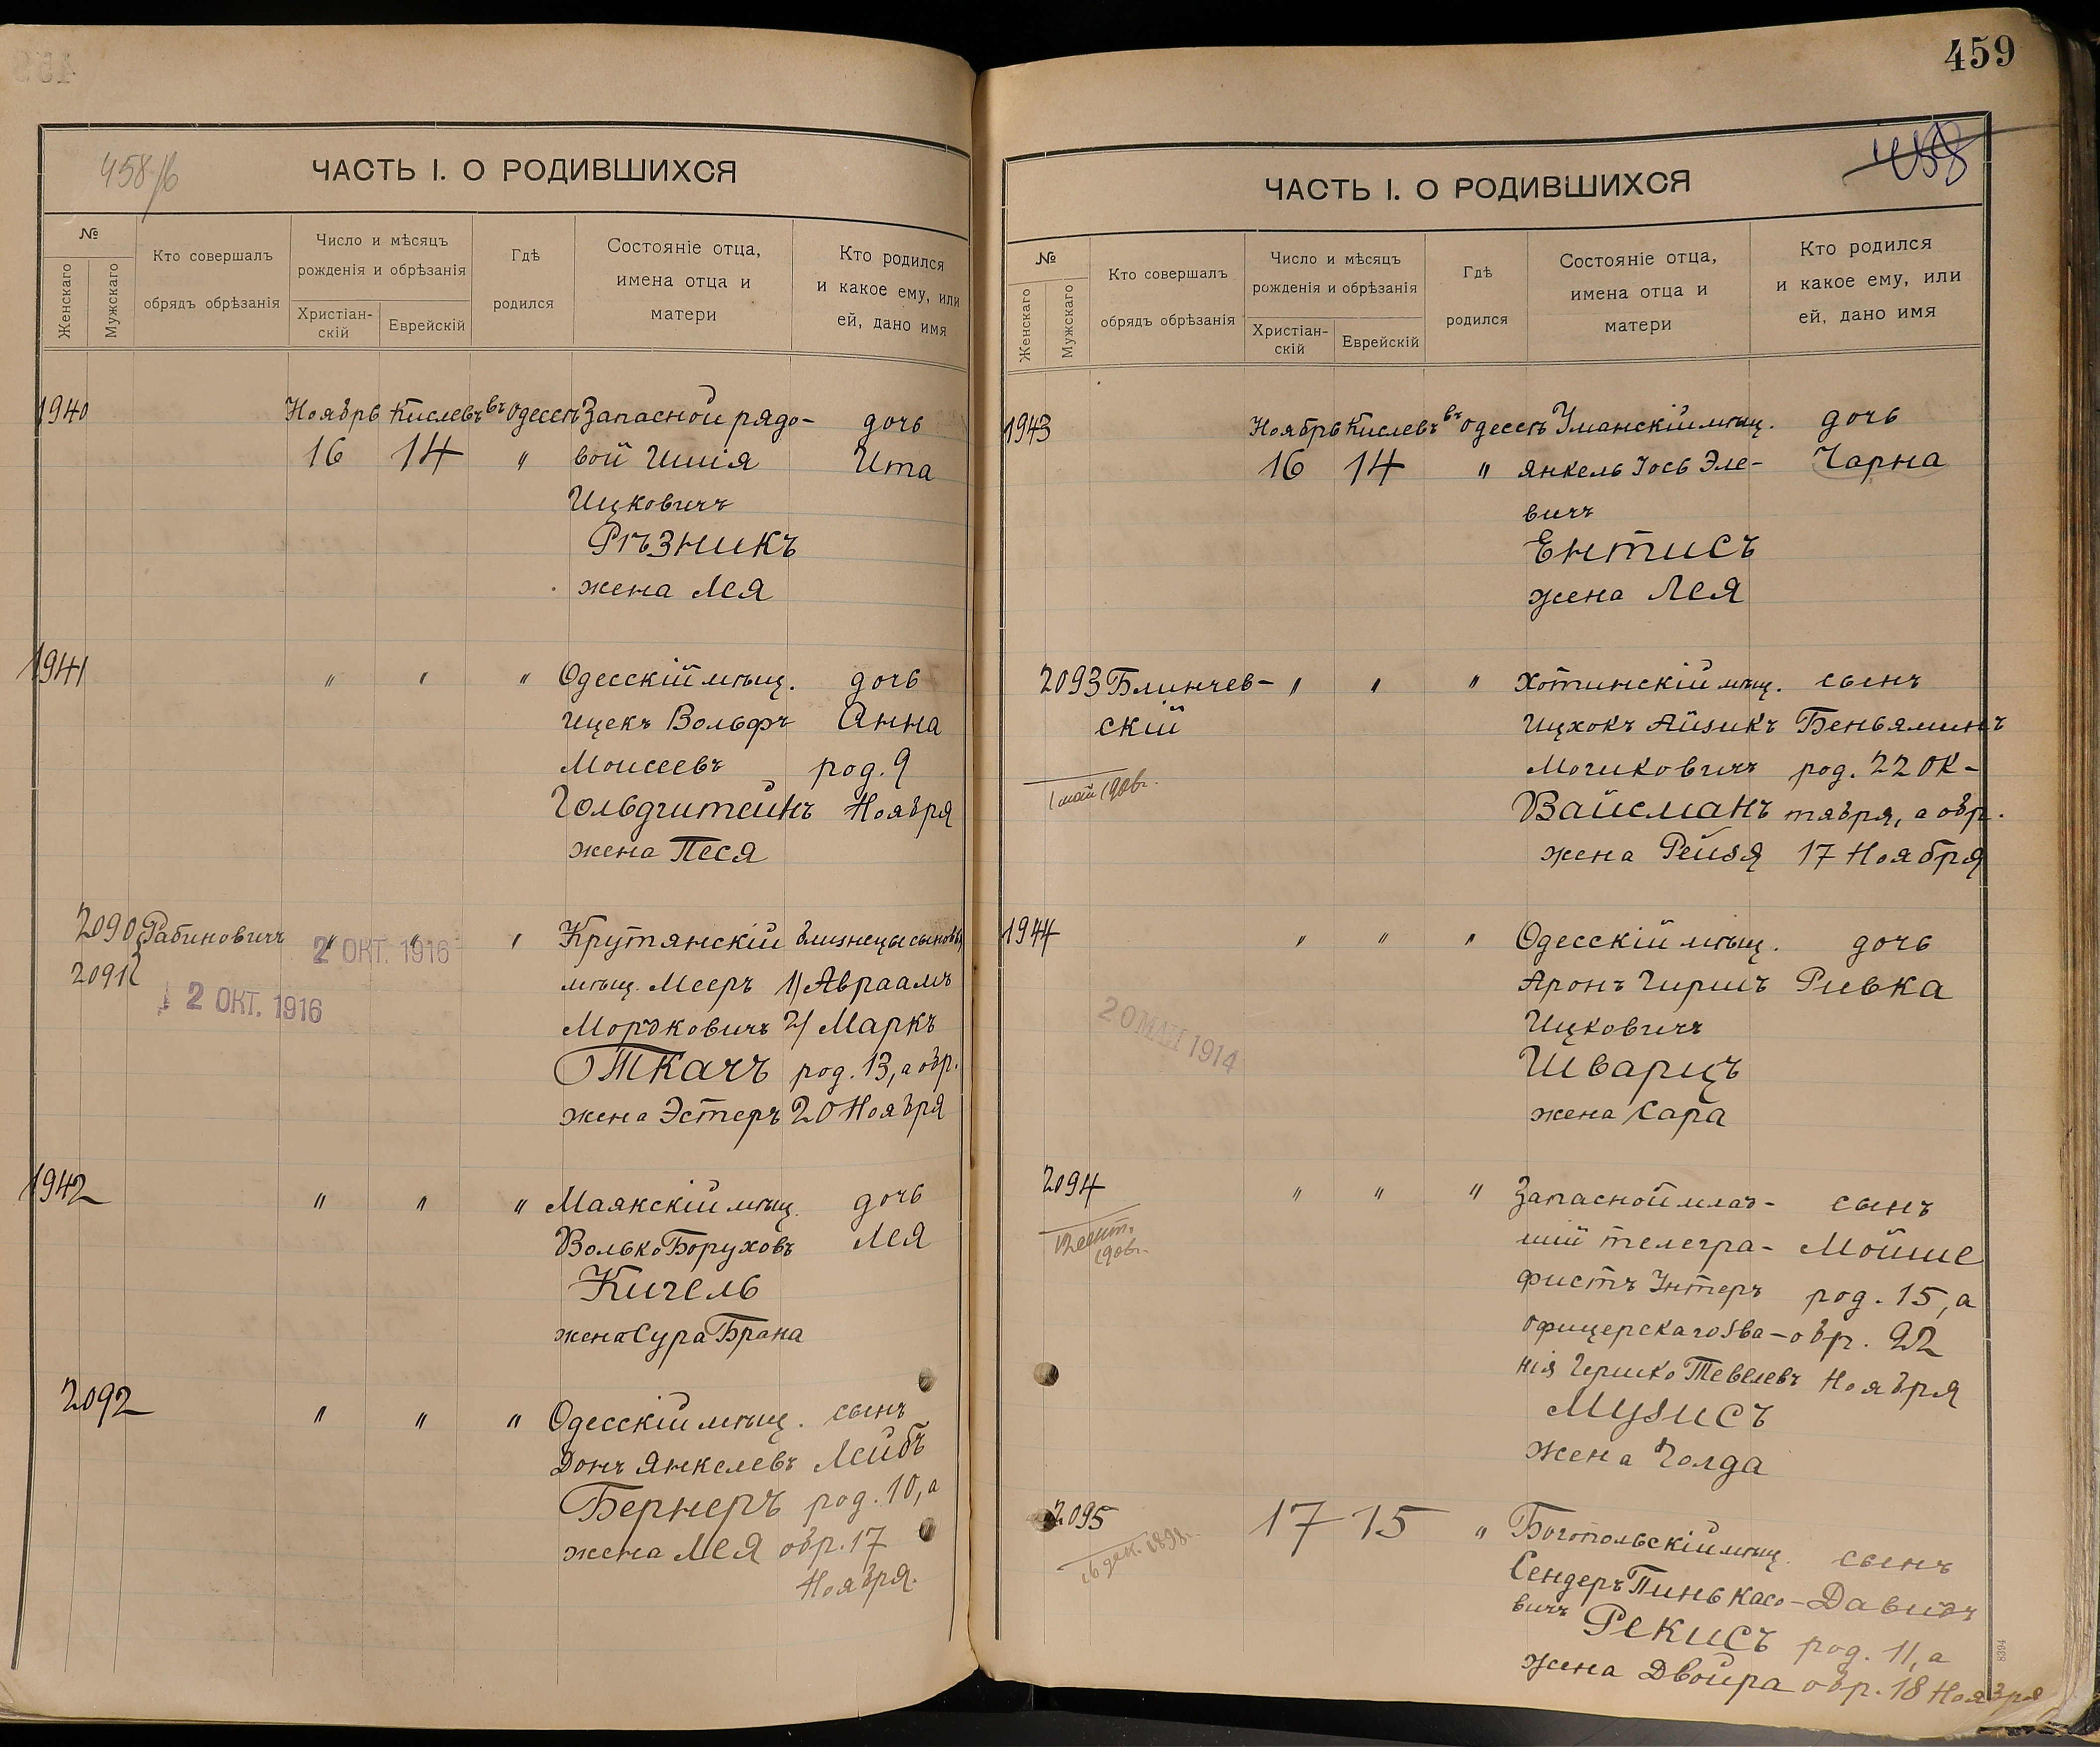 459
458/б
ЧАСТЬ I. О РОДИВШИХСЯ
№
Женскаго
Мужскаго
Кто совершалъ
обрядъ обрѣзанія
Число и мѣсяцъ
рожденія и обрѣзанія
Христіан-
скій
Еврейскій
Гдѣ
родился
Состояніе отца,
имена отца и
матери
Кто родился
и какое ему, или
ей, дано имя
1940 Ноябрь Кислевъ въ Одессѣ Запасной рядо- дочь
16 14 " вой Шлія Ита
Ицковичъ
Рѣзникъ
жена Лея
1941 " " " Одесскій мѣщ. дочь
Ицекъ Вольфъ Анна
Моисеевъ род. 9
Гольдштейнъ Ноября
жена Песя
2090 Рабиновичъ " " " Крутянскій близнецы сыновья
2 ОКТ. 1916
2091 мѣщ. Мееръ 1) Авраамъ
2 ОКТ. 1916
Мордковичъ 2) Маркъ
Ткачъ род. 13, а обр.
жена Эстеръ 20 Ноября
1942 " " " Маякскій мѣщ. дочь
Волько Боруховъ Лея
Кигель
жена Сура Брана
2092 " " " Одесскій мѣщ. сынъ
Донъ Янкелевъ Лейбъ
Бернеръ род. 10, а
жена Лея обр. 17
Ноября.
459
458
ЧАСТЬ I. О РОДИВШИХСЯ
№
Женскаго
Мужскаго
Кто совершалъ
обрядъ обрѣзанія
Число и мѣсяцъ
рожденія и обрѣзанія
Христіан-
скій
Еврейскій
Гдѣ
родился
Состояніе отца,
имена отца и
матери
Кто родился
и какое ему, или
ей, дано имя
1943 Ноябрь Кислевъ въ Одессѣ Уманскій мѣщ. дочь
16 14 " Янкель Іось Эле- Чарна
вичъ
Ентисъ
жена Лея
2093 Блинчев- " " " Хотинскій мѣщ. сынъ
скій Ицхокъ Айзикъ Беньяминъ
Мошковичъ род. 22 Ок-
1 май 1906г.
Вайсманъ тября, а обр.
жена Рейзя 17 Ноября
1944 " " " Одесскій мѣщ. дочь
Аронъ Гиршъ Ривка
20 МАЙ 1914
Ицковичъ
Шварцъ
жена Сара
2094 " " " Запасной млад- сынъ
шій телегра- Мойше
1906г.
фистъ Унтеръ род. 15, а
офицерскаго зва- обр. 22
нія Гершко Тевелевъ Ноября
Музисъ
жена Голда
2095 17 15 " Богопольскій мѣщ. сынъ
16 дек. 1898г.
Сендеръ Пинькасо- Давидъ
вичъ Рекисъ род. 11, а
жена Двойра обр. 18 Ноября
8394